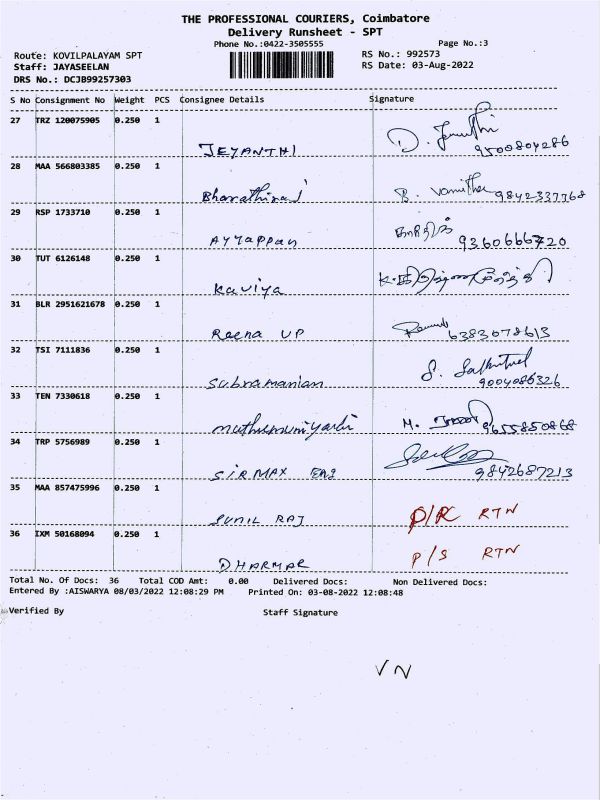 THE PROFESSIONAL COURIERS, Coimbatore
Delivery Runsheet - SPT
Phone No.:0422-3505555 Page No.:3
Route: KOVILPALAYAM SPT RS No.: 992573
Staff: JAYASEELAN RS Date: 03-Aug-2022
DRS No.: DCJB99257303
S No Consignment No Weight PCS Consignee Details Signature
27 TRZ 120075905 0.250 1
JEYANTHI D. 9500804286
28 MAA 566803385 0.250 1
Bharathiraj B. Vanitha 9842337768
29 RSP 1733710 0.250 1
AYYappan 9360666720
30 TUT 6126148 0.250 1
Kaviya
31 BLR 2951621678 0.250 1
Reena UP 6383078613
32 TSI 7111836 0.250 1
Subramaniam S. 9004086326
33 TEN 7330618 0.250 1
M. 9655850868
34 TRP 5756989 0.250 1
SIRMAX Eng 9842687213
35 MAA 857475996 0.250 1
SUNIL RAJ RTN
36 IXM 50168094 0.250 1
DHARMAR P/S RTN
Total No. Of Docs: 36 Total COD Amt: 0.00 Delivered Docs: Non Delivered Docs:
Entered By :AISWARYA 08/03/2022 12:08:29 PM Printed On: 03-08-2022 12:08:48
Verified By Staff Signature
VN